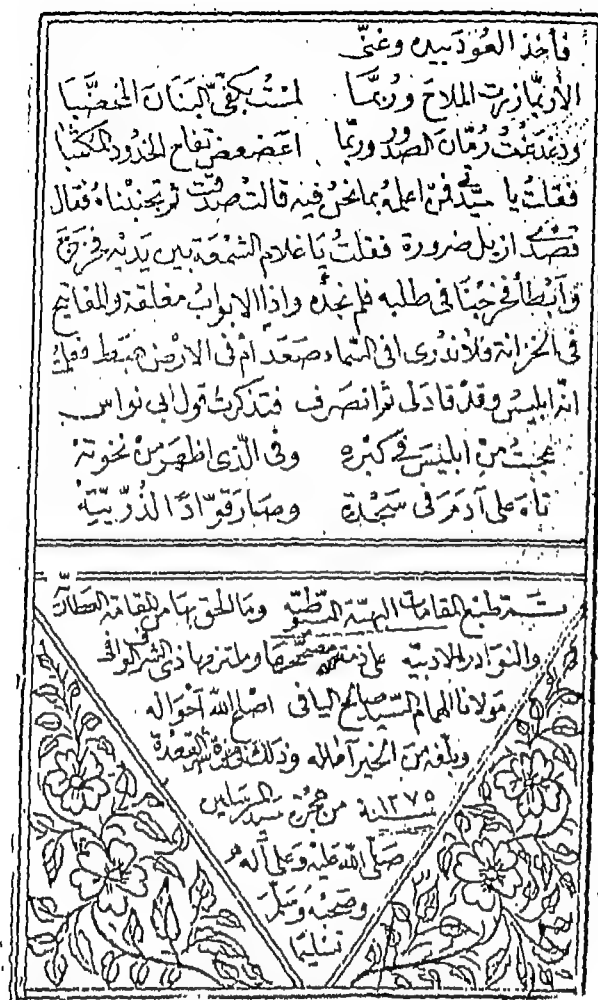 فأخذ العود بيده وغنى
الا ربما زرت الملاح وربما لمست بكفي البنان المخضبا
ودغدغت رمان الصدور وربما اعضعض تفاح الخدود المكتبا
فقلت يا سيدتي فمن اعلمه بما نحن فيه قالت صدقت ثم تجنبناه فقال
قصدي ازيل ضرورة فقلت يا غلام الشمعة بين يديه فخرج
وابطأ فخرجنا في طلبه فلم نجده واذا الابواب مغلقة والمفاتيح
في الخزانة فلا ندري افى السماء صعد أم فى الارض هبط فعلمت
انه ابليس وقد قاد لى ثم انصرف فتذكرت قول ابى نواس
عجبت من ابليس في كبره وفى الذى اظهر من نخوته
تاه على آدم فى سجدة وصار قوادا لذريته
تم طبع المقامات البهية السيوطيه وما الحق بها من المقامة
والنوادر الادبيه على ذمة مصححها وملتزمها ذى الشرف الوافى
مولانا الهمام السيد صالح اليافى اصلح الله احواله
وبلغه من الخير آماله وذلك فى غرة شهر القعدة
سنة ١٢٧٥ من هجرة سيد المرسلين
صلى الله عليه وعلى آله
وصحبه وسلم
تسليما